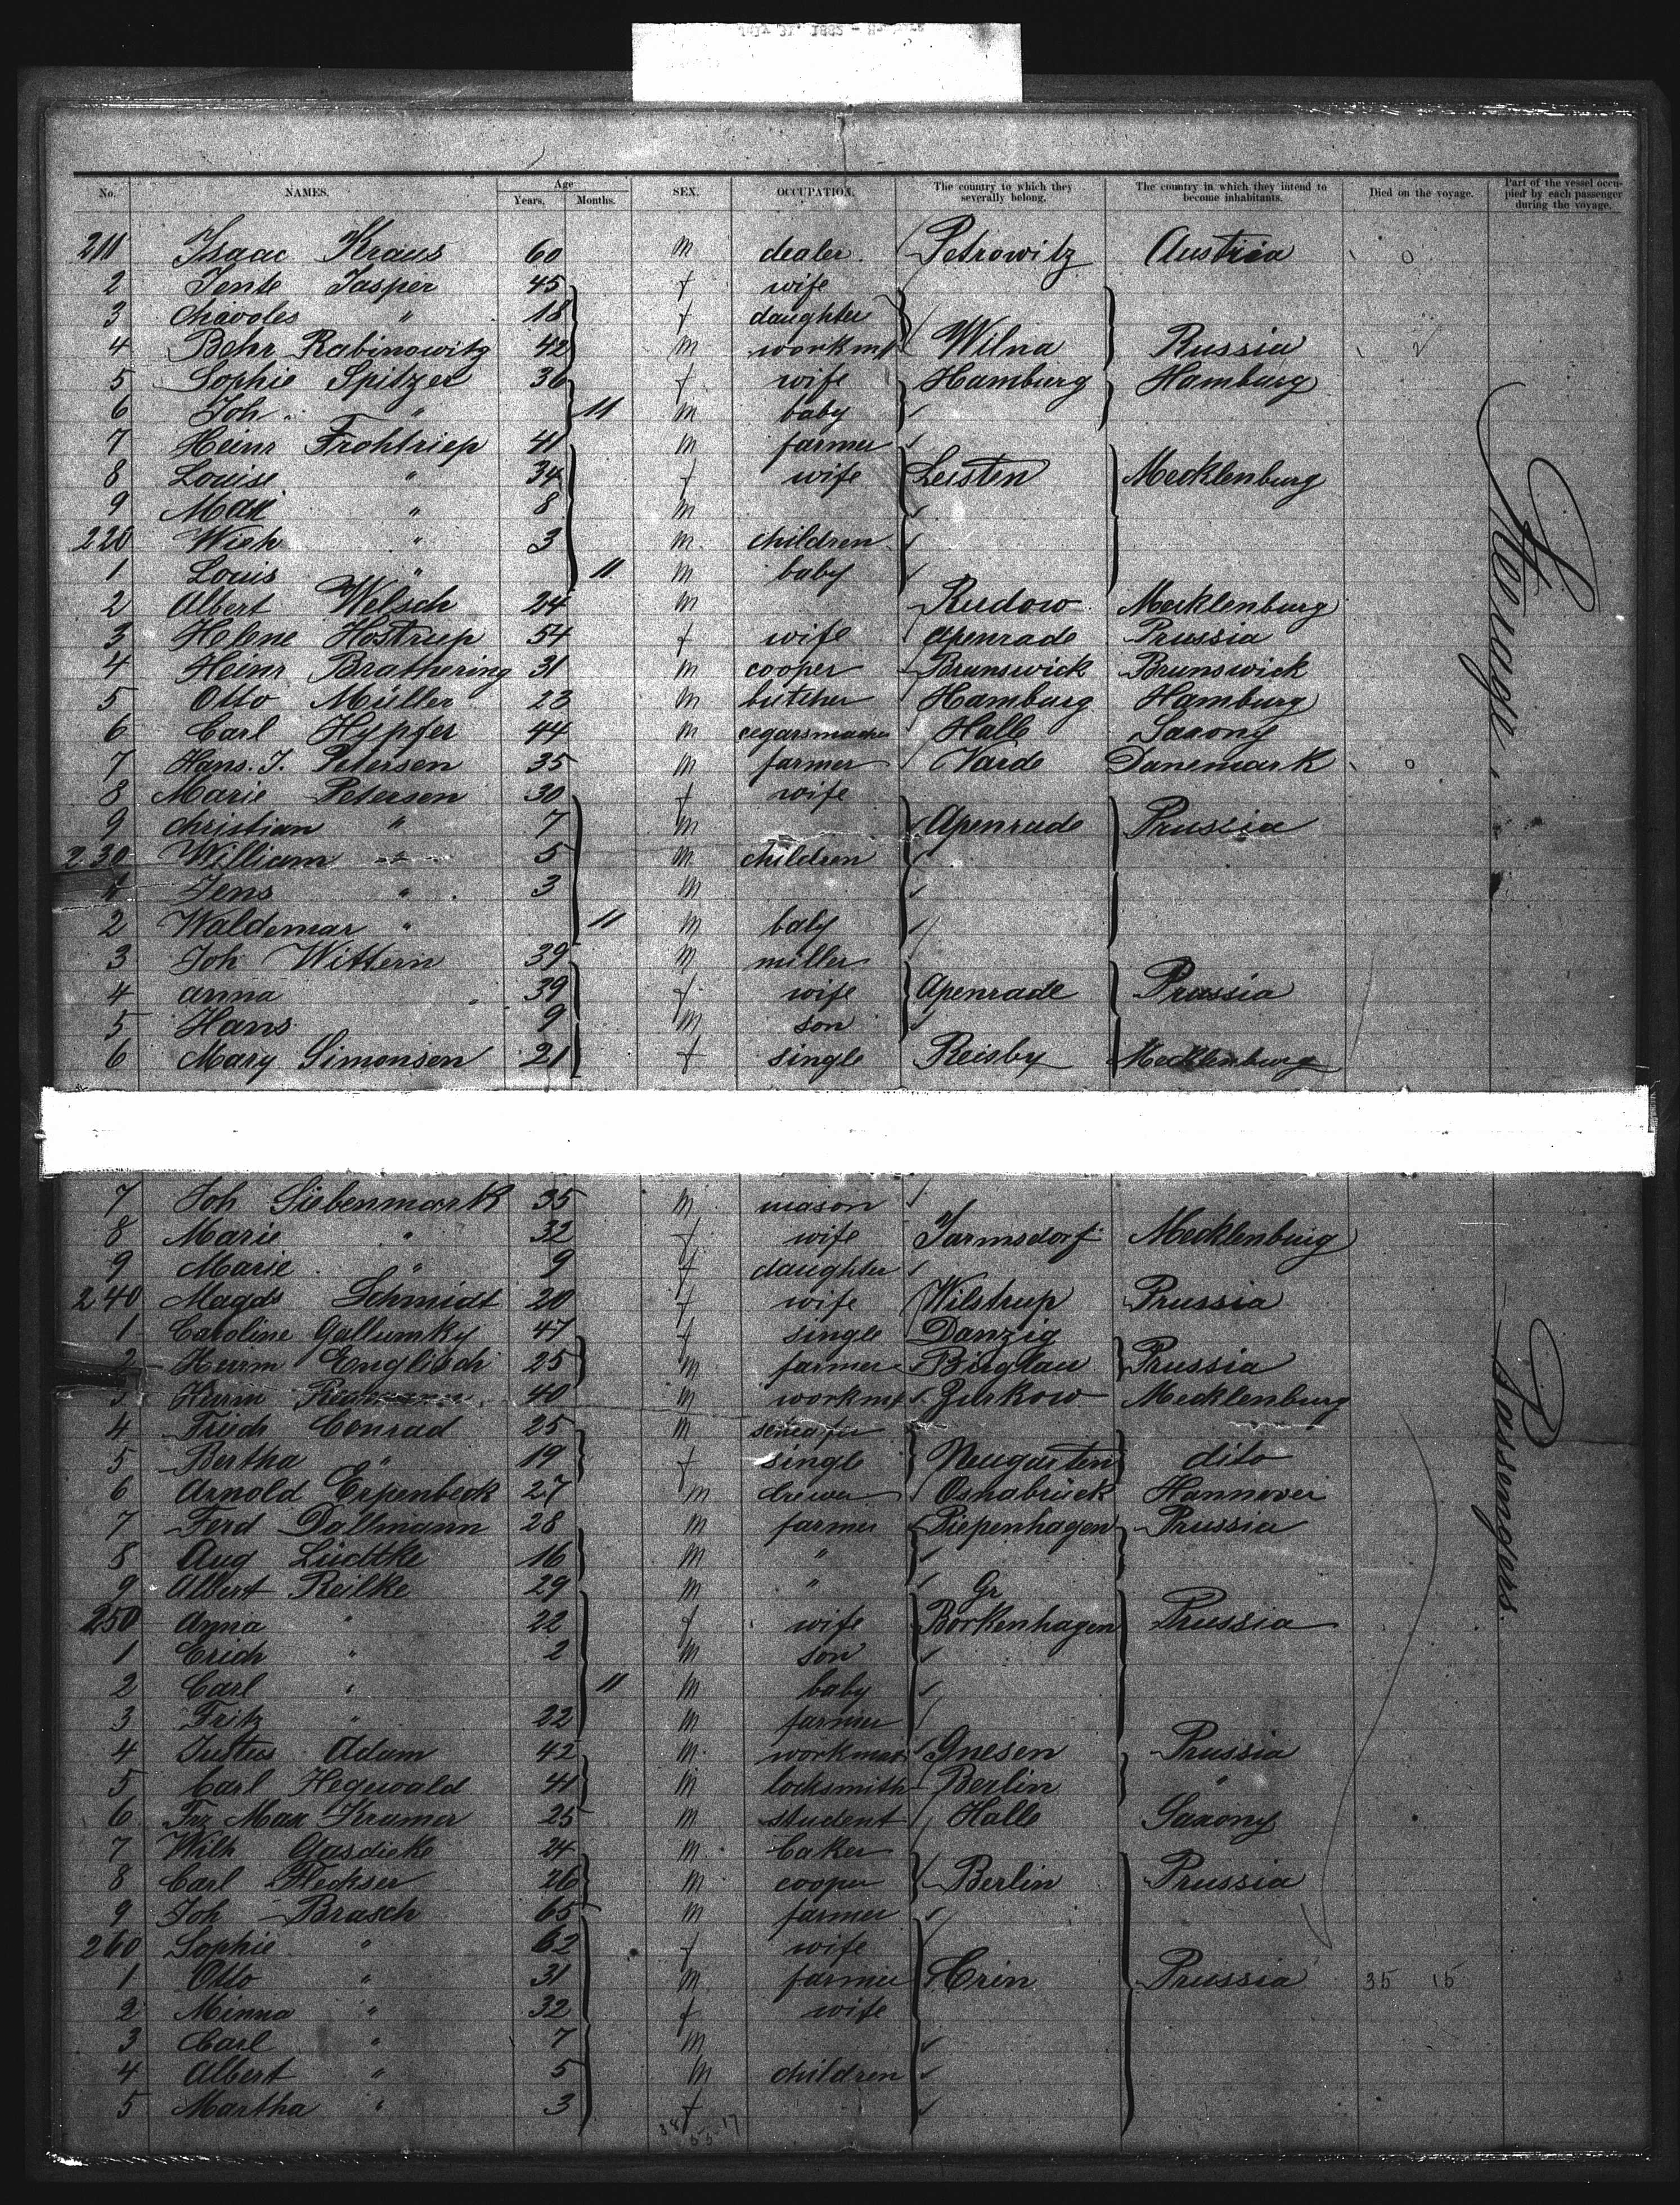 No. NAMES. Age Years, Months. SEX. OCCUPATION. The country to which they severally belong. The country in which they intend to become inhabitants. Died on the voyage. Part of the vessel occupied by each passenger during the voyage.
211 Isaac Kraus 60 m dealer Petrowitz Austria 0
2 Jente Jasper 45 f wife
3 Chavoles " 18 f daughter
4 Behr Rabinowitz 42 m workm Wilna Russia
5 Sophie Spitzer 36 f wife Hamburg Hamburg
6 Joh " 11 m baby
7 Heinr Frohtriep 41 m farmer
8 Louise " 34 f wife Leisten Mecklenburg
9 Max " 8 m
220 Wich " 3 m children
1 Louis " 11 m baby
2 Albert Welsch 24 m Rudow Mecklenburg
3 Helene Hostrup 54 f wife Apenrade Prussia
4 Heinr Brathering 31 m cooper Brunswick Brunswick
5 Otto Müller 23 m butcher Hamburg Hamburg
6 Carl Hypfer 44 m Halle Saxony
7 Hans. J. Petersen 35 m farmer Varde Danemark 0
8 Marie Petersen 30 f wife
9 Christian " 7 m Apenrade Prussia
230 William " 5 m children
1 Jens " 3 m
2 Waldemar " 11 m baby
3 Joh Wittern 39 m miller
4 Anna 39 f wife Apenrade Prussia
5 Hans 9 m son
6 Mary Simonsen 21 f single Reisby Mecklenburg
7 Joh Siebenmark 35 m mason
8 Marie " 32 f wife Jarmsdorf Mecklenburg
9 Marie " 9 f daughter
240 Magds Schmidt 20 f wife Wilstrup Prussia
1 Caroline Gallumky 47 f single Danzig
2 Herrm Englisch 25 m farmer Birglau Prussia
3 Herrm 40 m workm Zurkow Mecklenburg
4 Friedr Conrad 25 m
5 Bertha " 19 f single Neugarten dito
6 Arnold Erpenbeck 27 m brewer Osnabrück Hannover
7 Ferd Dallmann 28 m farmer Piepenhagen Prussia
8 Aug Lüdtke 16 m "
9 Albert Reilke 29 m " Gr
250 Anna " 22 f wife Borkenhagen Prussia
1 Erich " 2 m son
2 Carl " 11 m baby
3 Fritz " 22 m farmer
4 Justus Adam 42 m workman Gnesen Prussia
5 Carl Hegewald 41 m locksmith Berlin "
6 Frz Max Kramer 25 m student Halle Saxony
7 Wilh Gasdieke 24 m baker
8 Carl Fleckser 26 m cooper Berlin Prussia
9 Joh Brasch 65 m farmer
260 Sophie " 62 f wife
1 Otto " 31 m farmer Crin Prussia 35 15
2 Minna " 32 f wife
3 Carl " 7 m
4 Albert " 5 m children
5 Martha " 3 f
Steerage
Passengers.